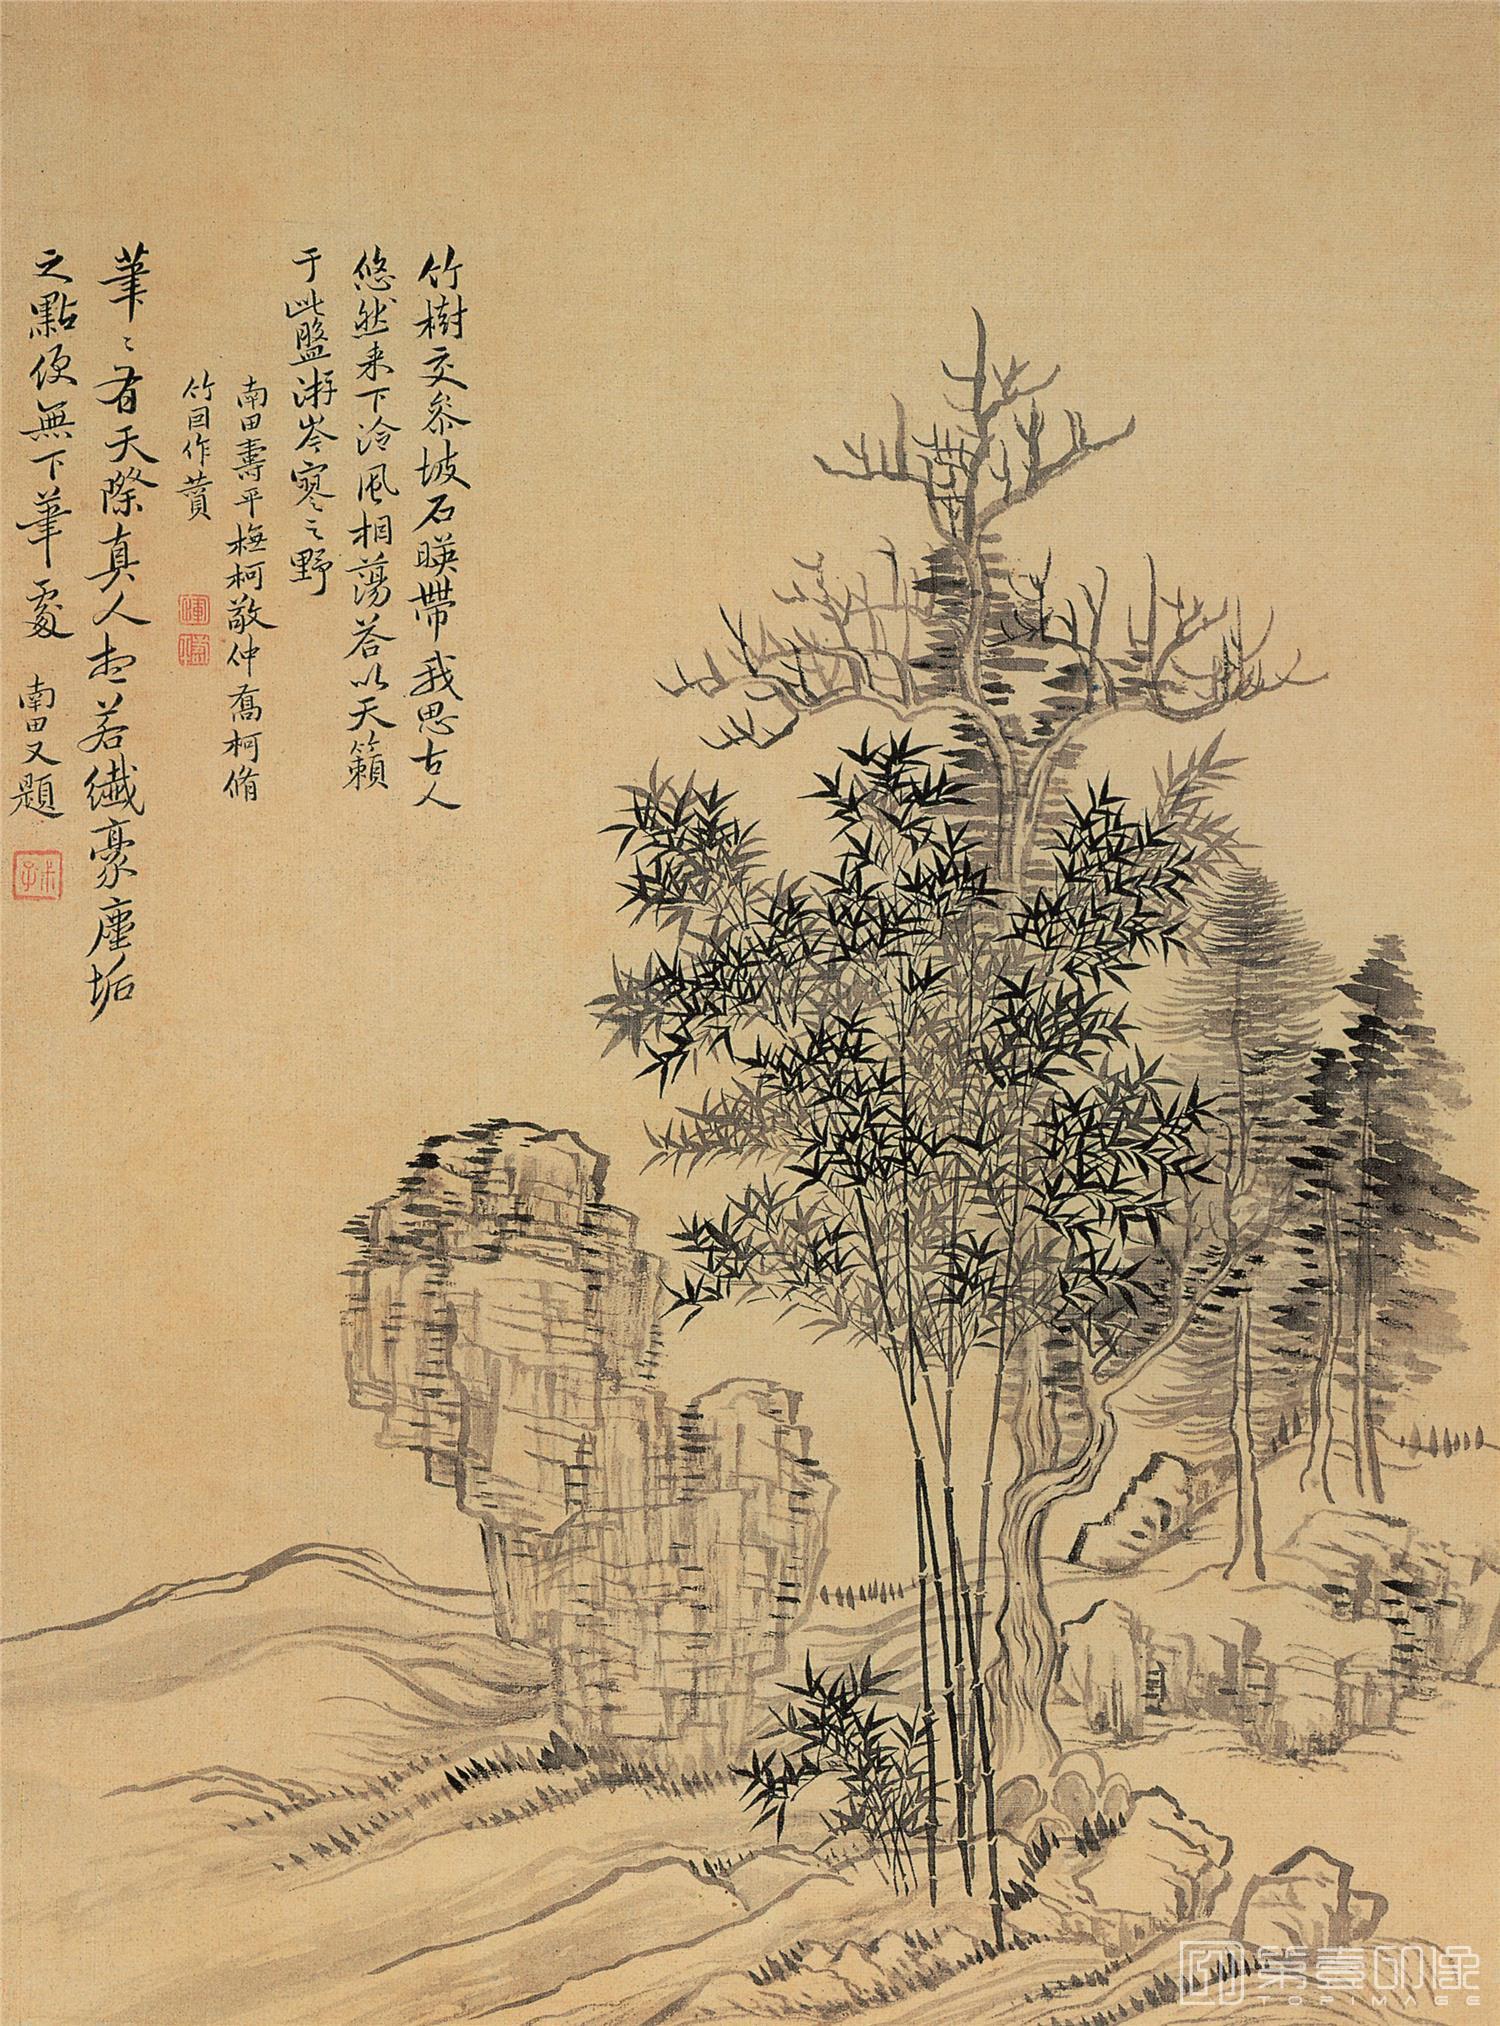 竹樹交參坡石暎帶我思古人
悠然来下泠風相蕩荅以天籟
于此盤游岑寥之野
南田壽平橅柯敬仲喬柯脩
竹因作贊
筆〻有天際真人想若纖豪塵垢
之點便無下筆處 南田又題
第壹印象
TOPIMAGE